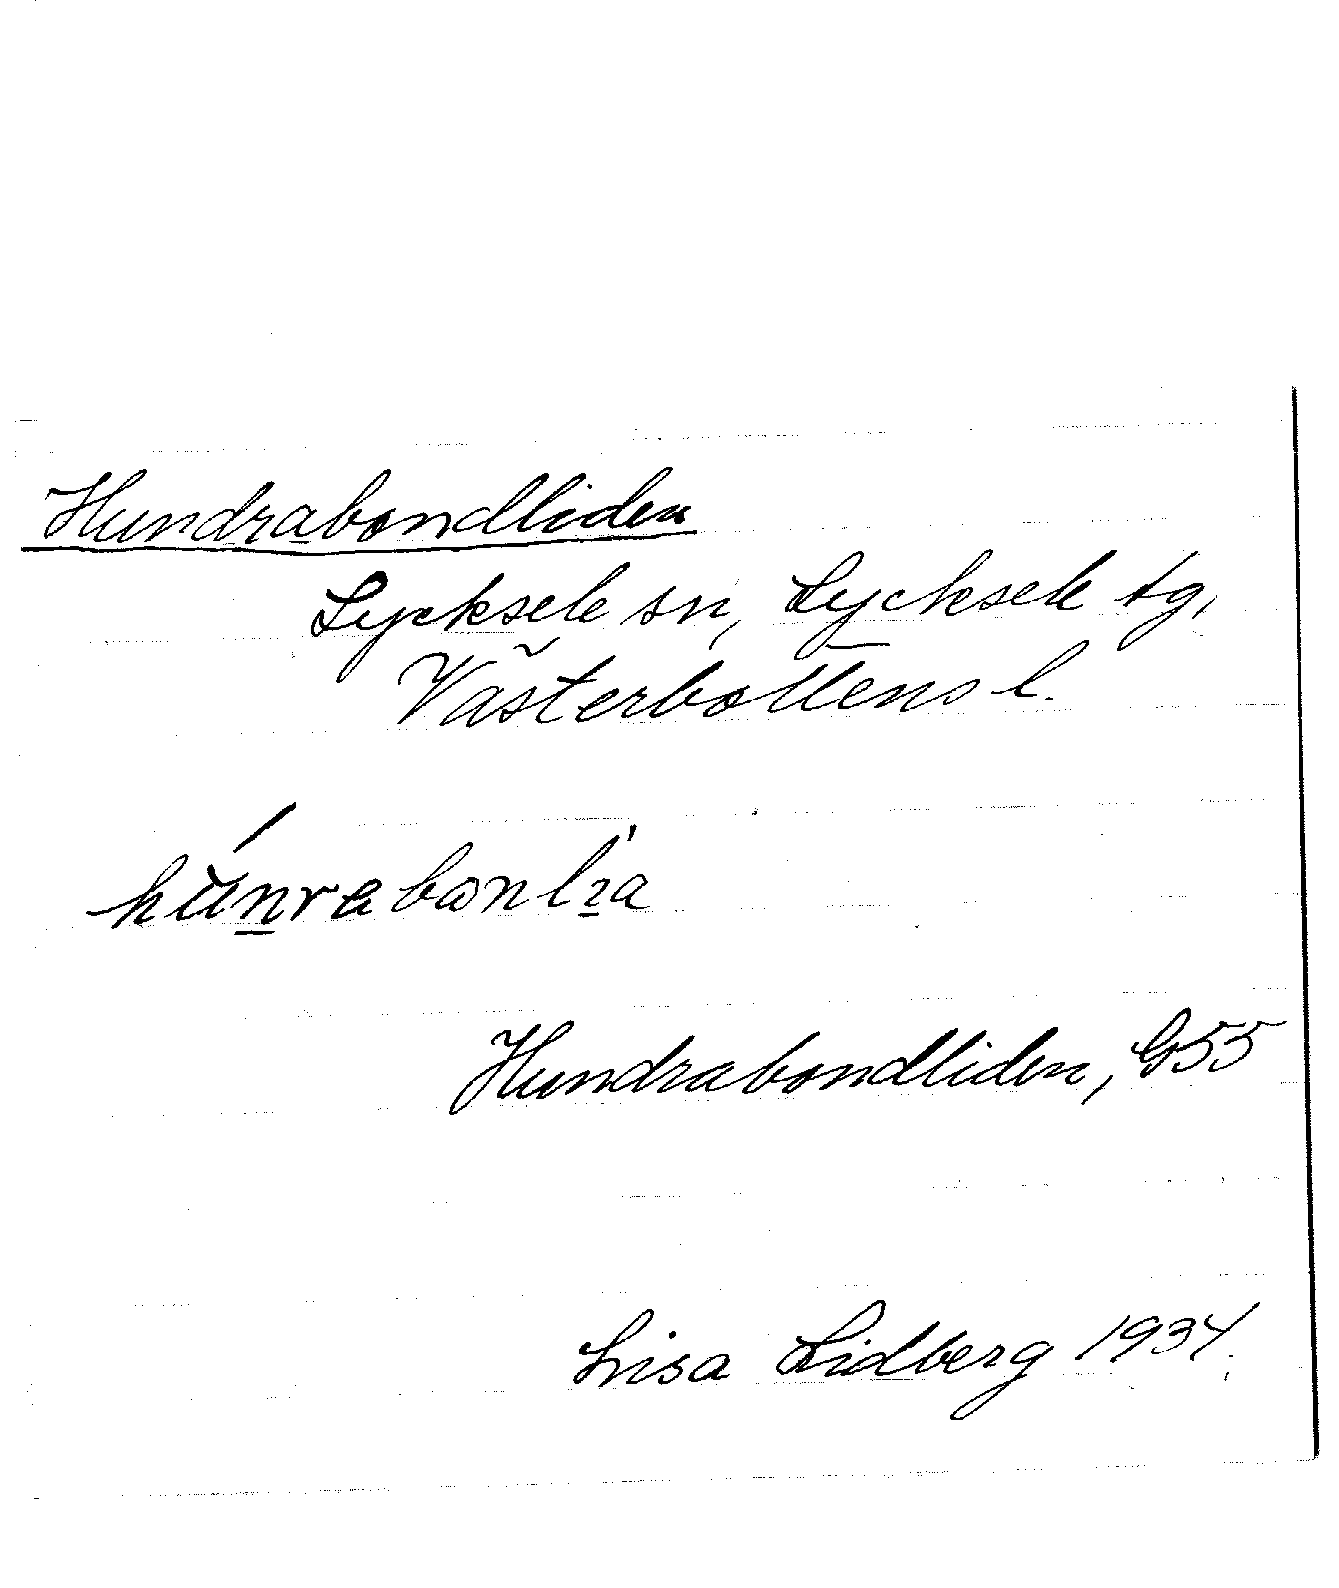 Hundrabondliden
Lycksele sn, Lycksele tg,
Västerbottens l.
Hundrabondliden, G55
Lisa Lidberg 1934.